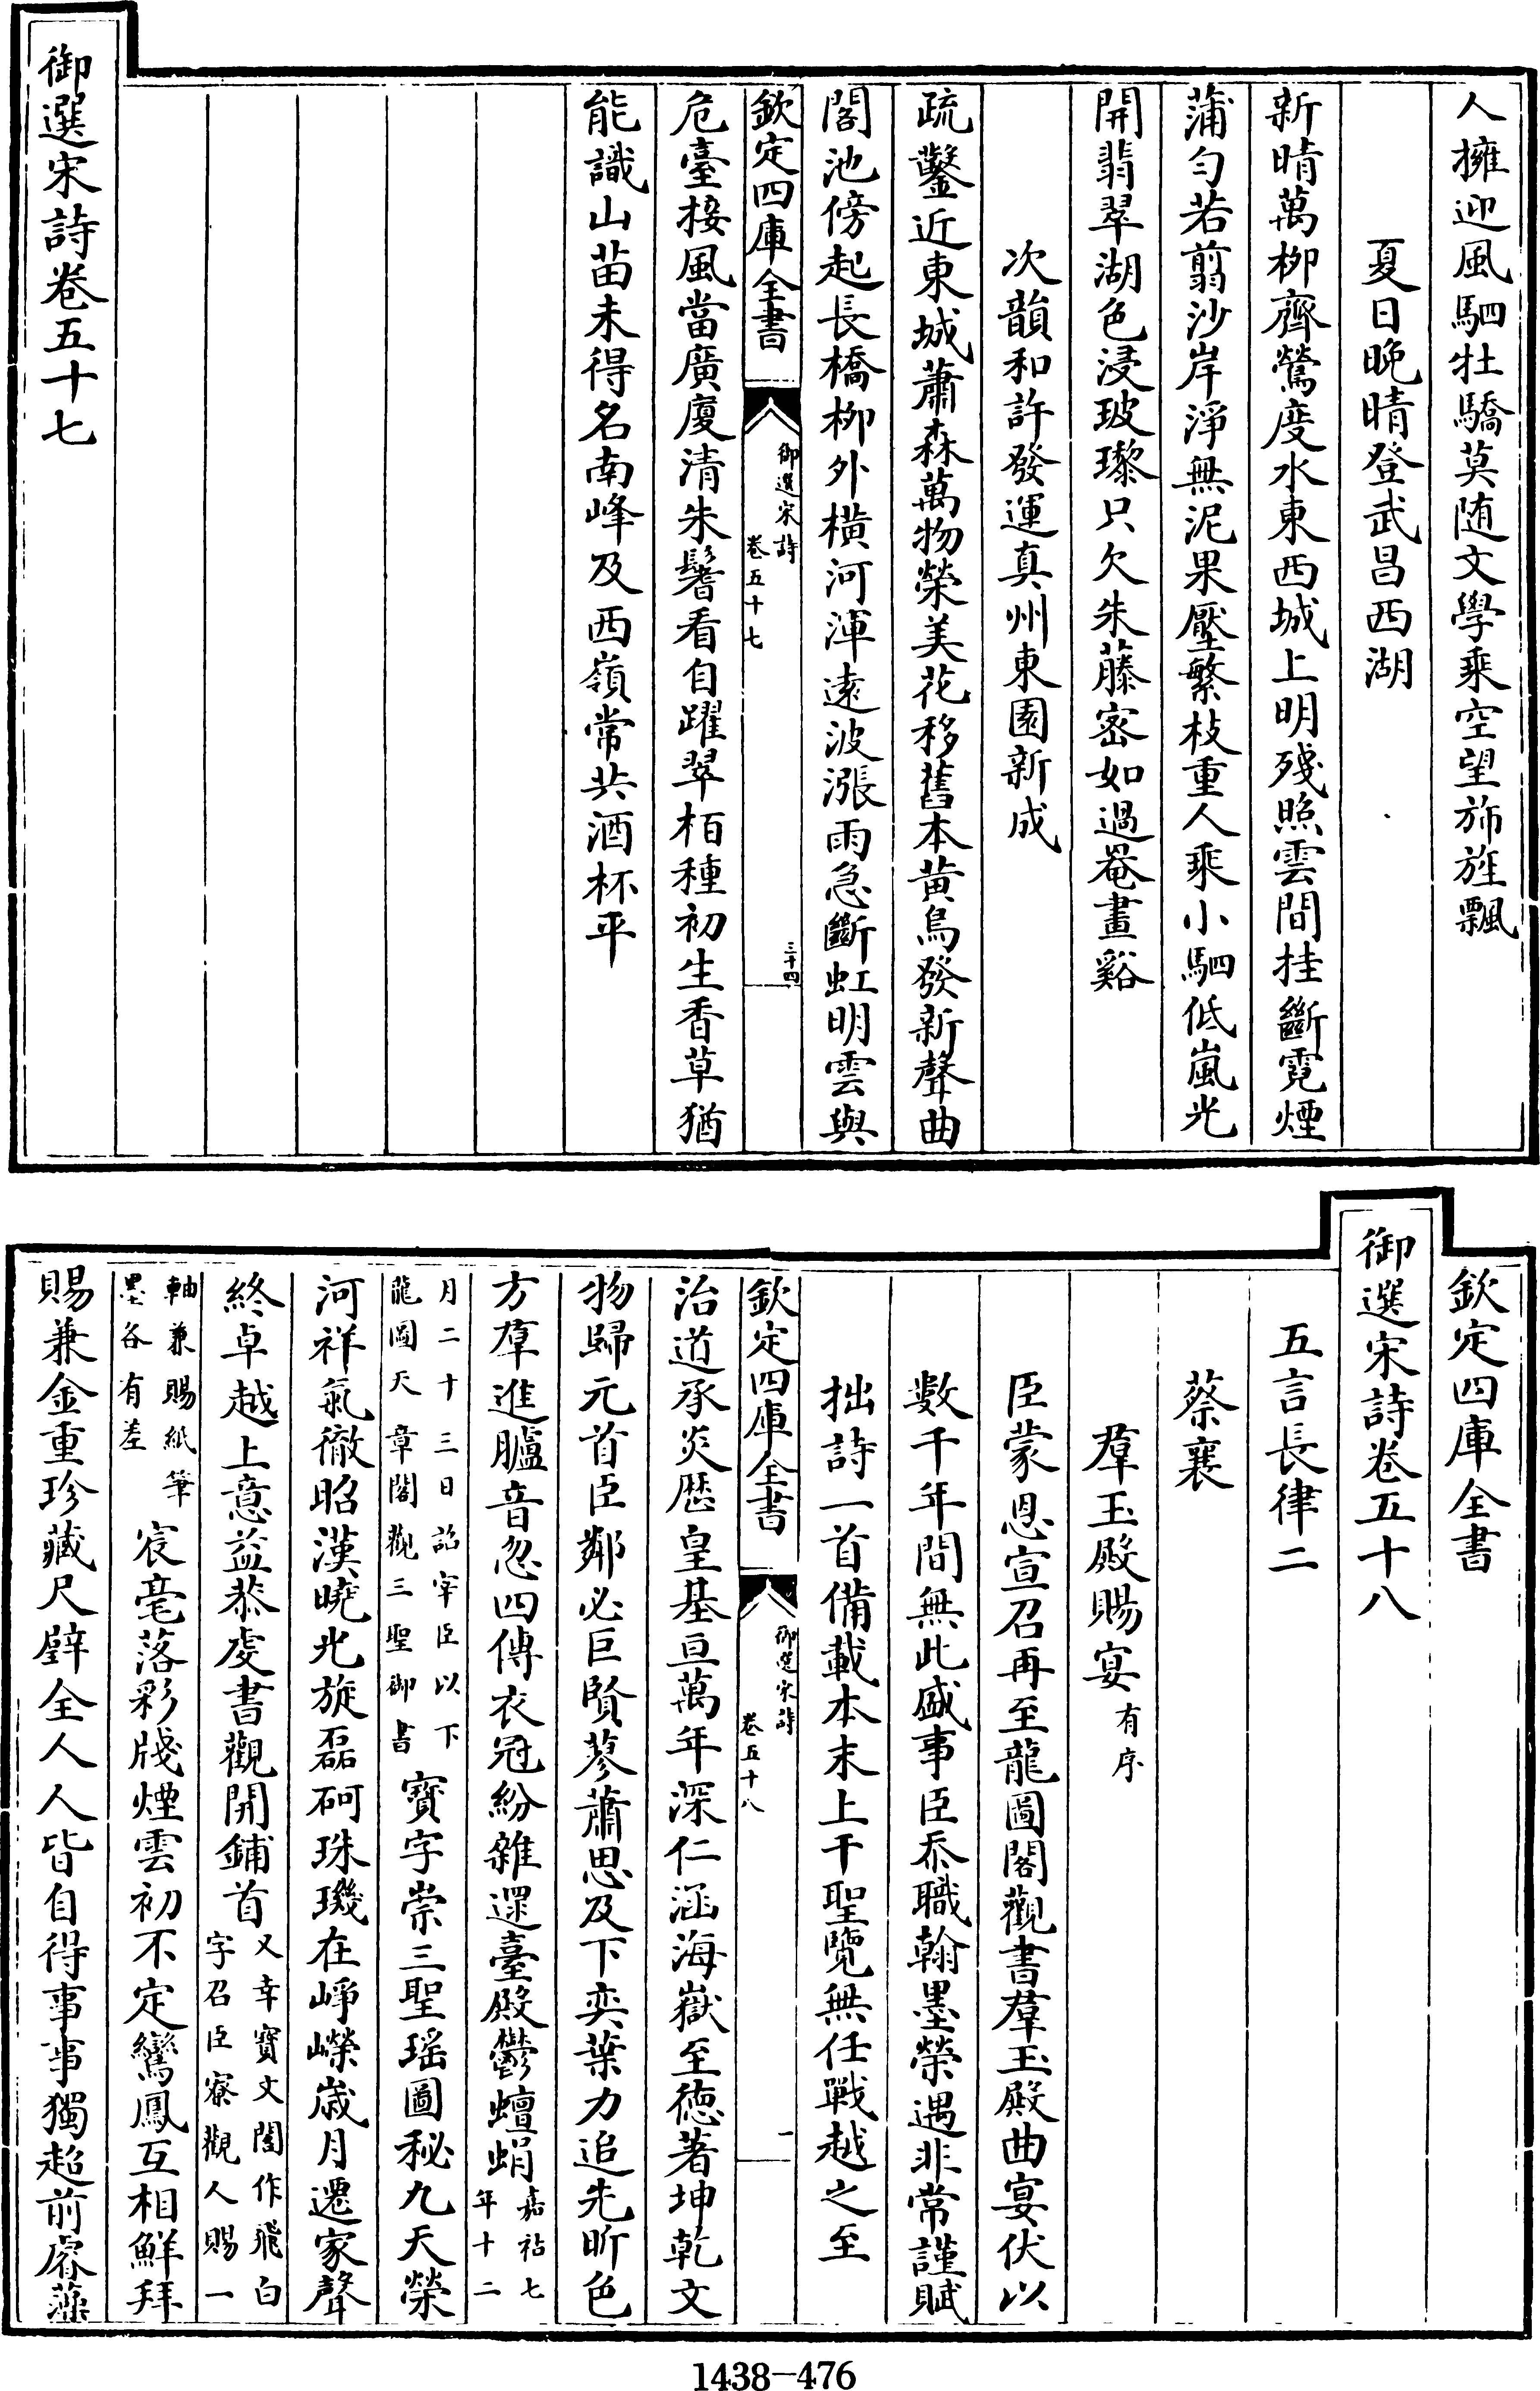 人擁迎風駟牡驕莫随文學乘空望斾旌飄
夏日晚晴登武昌西湖
新晴萬栁齊鶯度水東西城上明殘照雲間挂斷霓煙
蒲匀若翦沙岸淨無泥果壓繁枝重人乘小駟低嵐光
開翡翠湖色浸玻瓈只欠朱藤密如過罨畫谿
次韻和許發運真州東園新成
疏鑿近東城蕭森萬物榮美花移舊本黄鳥發新聲曲
閣池傍起長橋栁外橫河渾遠波漲雨急斷虹明雲與
欽定四庫全書
御選宋詩
卷五十七
三十四
危臺接風當廣廈清朱鬐看自躍翠栢種初生香草猶
能識山苗未得名南峰及西嶺常共酒杯平
御選宋詩卷五十七
欽定四庫全書
御選宋詩卷五十八
五言長律二
蔡襄
羣玉殿賜宴有序
臣蒙恩宣召再至龍圖閣觀書羣玉殿曲宴伏以
數千年間無此盛事臣忝職翰墨榮遇非常謹賦
拙詩一首備載本末上干聖覽無任戰越之至
欽定四庫全書
御選宋詩
卷五十八
一
治道承炎厯皇基亘萬年深仁涵海嶽至德著坤乾文
物歸元首臣鄰必巨賢蓼蕭思及下奕葉力追先昕色
方羣進臚音忽四傳衣冠紛雜遝臺殿鬱蟺蜎嘉祐七年十二
月二十三日詔宰臣以下龍圖天章閣觀三聖御書寳字崇三聖瑶圖秘九天榮
河祥氣徹昭漢曉光旋磊砢珠璣在崢嶸歲月遷家聲
終卓越上意益恭虔書觀開鋪首又幸寳文閣作飛白字召臣寮觀人賜一
軸兼賜紙筆墨各有差宸毫落彩牋煙雲初不定鸞鳳互相鮮拜
賜兼金重珍藏尺璧全人人皆自得事事獨超前睿藻
1438—476